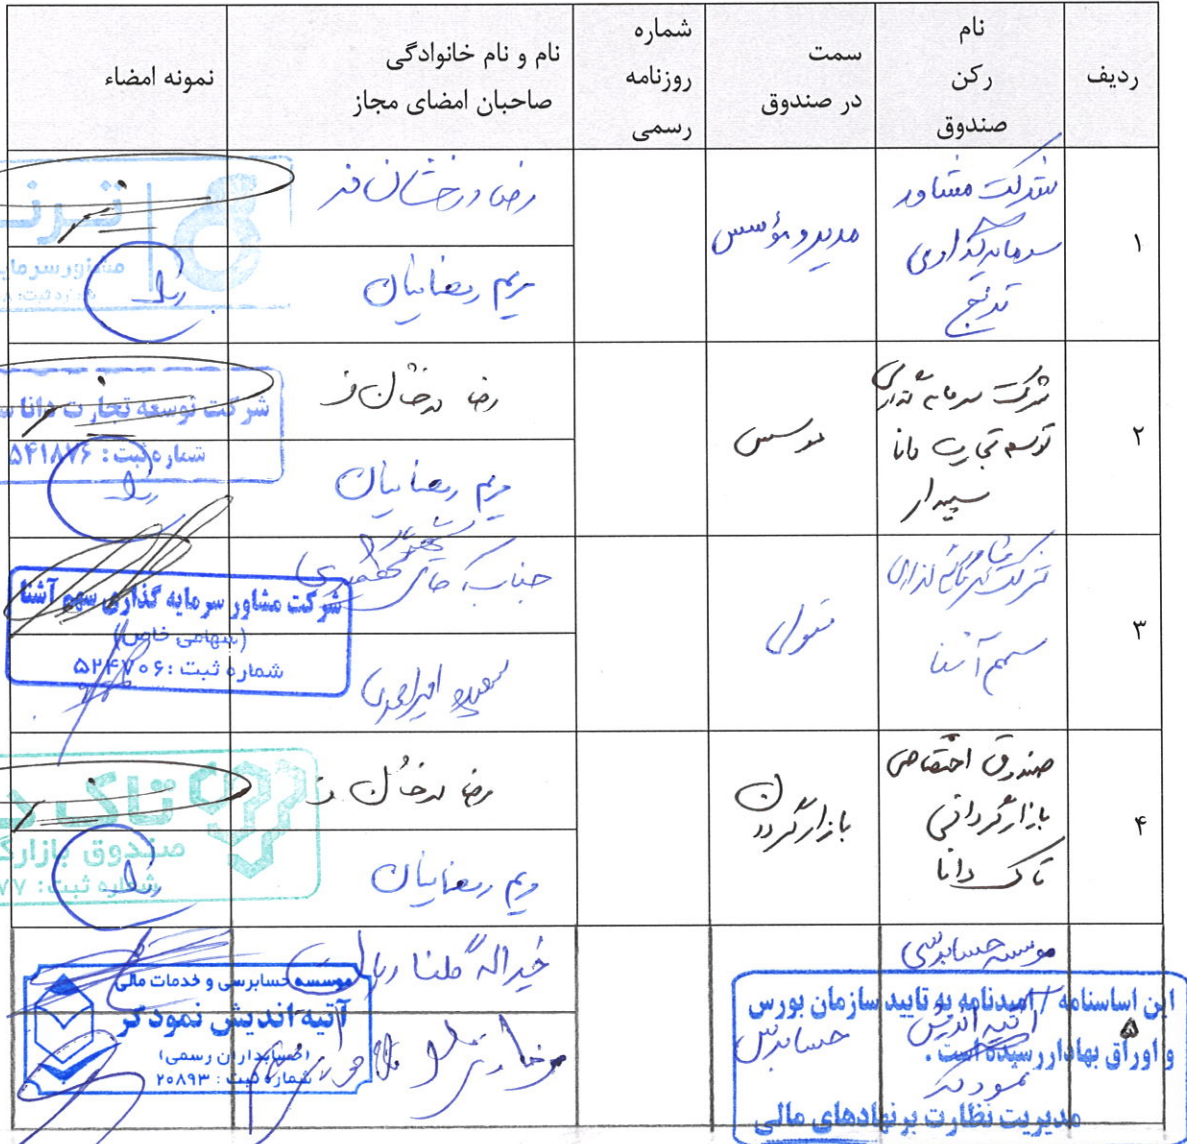 ردیف
نام
رکن
صندوق
سمت
در صندوق
شماره
روزنامه
رسمی
نام و نام خانوادگی
صاحبان امضای مجاز
نمونه امضاء
۱
شرکت مشاور
سرمایه‌گذاری
ترنج
مدیر و مؤسس
رضا درخشان فر
مریم رمضانیان
ترنـ
مشاور سرمایه
۲
شرکت سرمایه گذاری
توسعه تجارت دانا
سپیدار
موسس
رضا درخشان فر
مریم رمضانیان
شرکت توسعه تجارت دانا س
شماره ثبت: ۵۴۱۸۷۶
۳
شرکت مشاور سرمایه گذاری
سهم آشنا
متولی
جناب آقای
سعید
شرکت مشاور سرمایه گذاری سهم آشنا
(سهامی خاص)
شماره ثبت :۵۲۴۷۰۶
۴
صندوق اختصاصی
بازارگردانی
تاک دانا
بازارگردان
رضا درخشان فر
مریم رمضانیان
تاک د
صندوق بازارگ
شماره ثبت: ۷۷
۵
موسسه حسابرسی
آتیه اندیش
نمودگر
حسابرس
موسسه حسابرسی و خدمات مالی
آتیه اندیش نمودگر
(حسابداران رسمی)
شماره ثبت : ۲۰۸۹۳
این اساسنامه / امیدنامه به تایید سازمان بورس
و اوراق بهادار رسیده است .
مدیریت نظارت بر نهادهای مالی